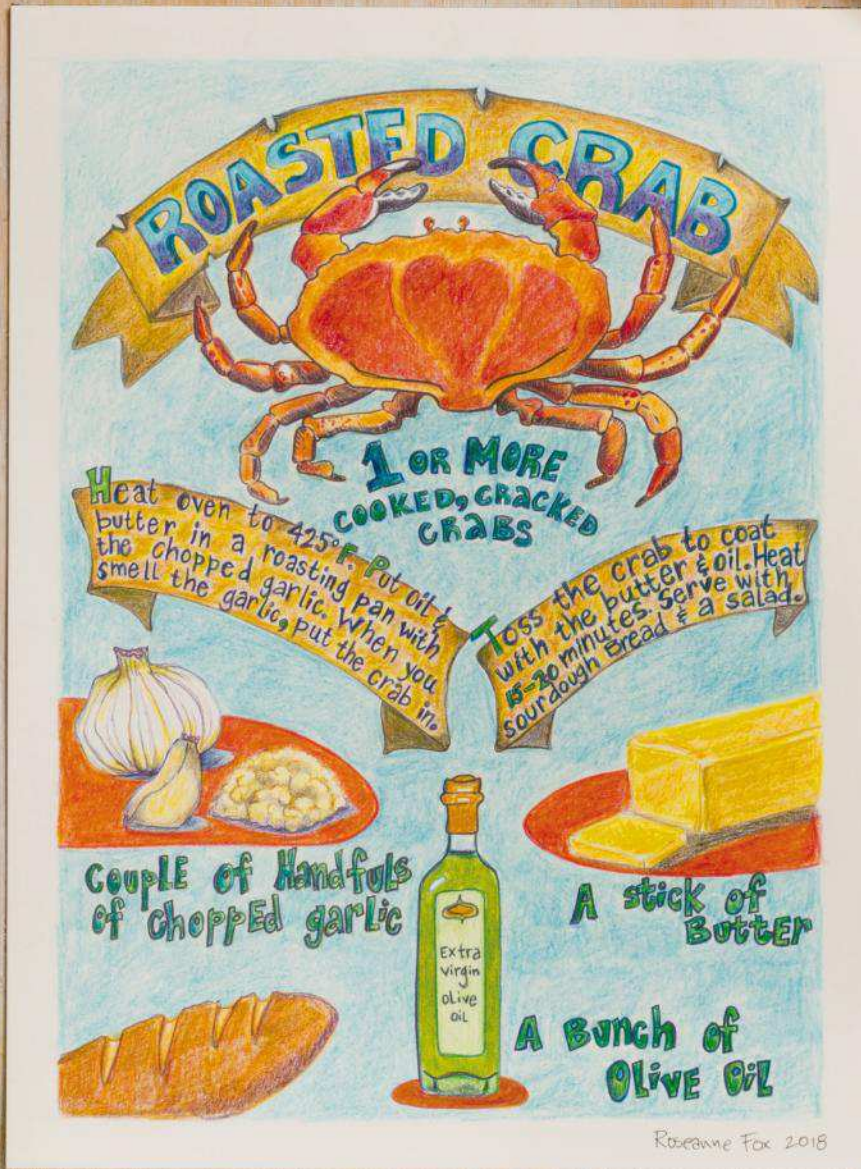 ROASTED CRAB
1 OR MORE
COOKED, CRACKED
CRABS
Heat oven to 425°F. Put oil &
butter in a roasting pan with
the chopped garlic. When you
smell the garlic, put the crab in.
Toss the crab to coat
with the butter & oil. Heat
15-20 minutes. Serve with
sourdough Bread & a salad.
COUPLE of Handfuls
of choppEd garLic
A stick of
ButtEr
Extra
virgin
olive
oil
A Bunch of
OLiVE OiL
Roseanne Fox 2018